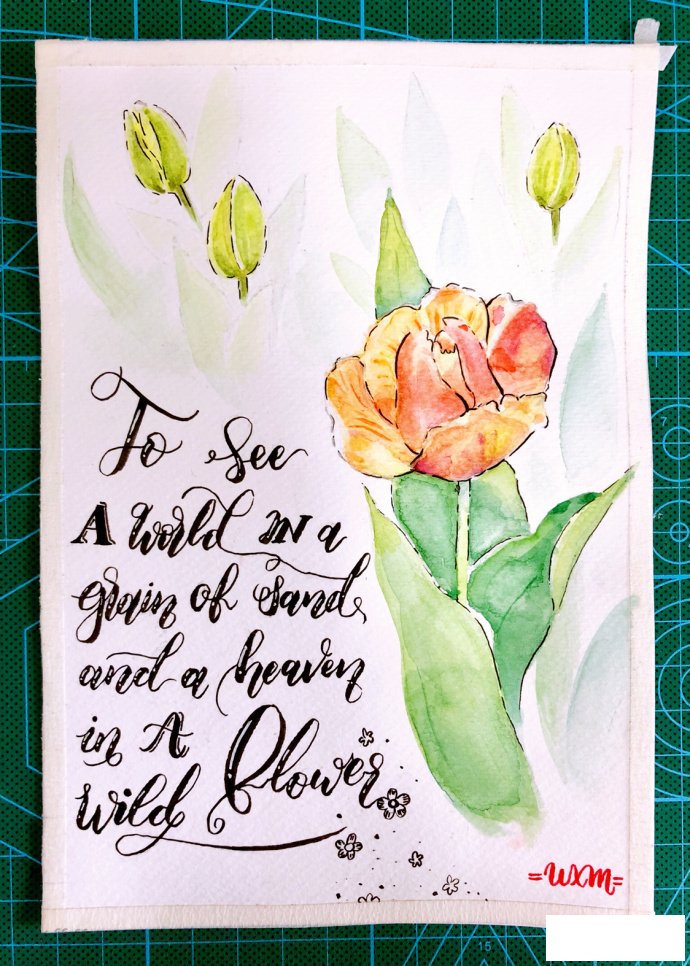 To see
A world IN a
grain of sand
and a heaven
in A
wild flower
=WXM=
7
15